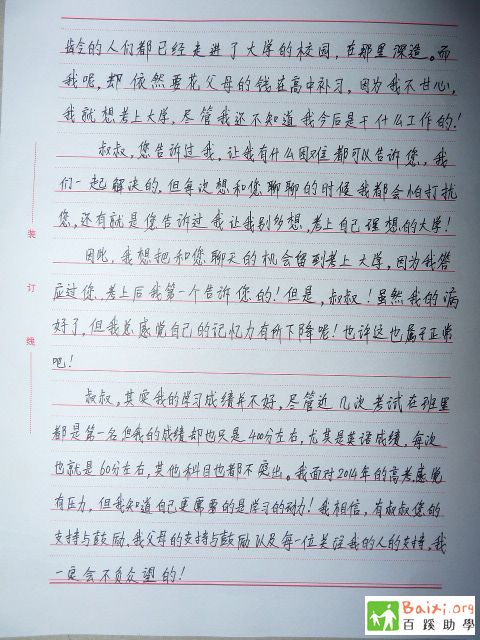 龄的人们都已经走进了大学的校园，在那里深造。而
我呢，却依然要花父母的钱在高中补习，因为我不甘心，
我就想考上大学，尽管我还不知道我今后是干什么工作的！
叔叔，您告诉过我，让我有什么困难都可以告诉您，我
们一起解决的，但每次想和您聊聊的时候我都会怕打扰
您，还有就是您告诉过我让我别多想，考上自己理想的大学！
因此，我想把和您聊天的机会留到考上大学，因为我答
应过您，考上后我第一个告诉您的！但是，叔叔！虽然我的病
好了，但我总感觉自己的记忆力有所下降呢！也许这也属于正常
吧！
叔叔，其实我的学习成绩并不好，尽管近几次考试在班里
都是第一名但我的成绩却也只是400分左右，尤其是英语成绩，每次
也就是60分左右，其他科目也都不突出。我面对2014年的高考感觉
有压力，但我知道自己更需要的是学习的动力！我相信，有叔叔您的
支持与鼓励，我父母的支持与鼓励以及每一位关注我的人的支持，我
一定会不负众望的！
装
订
线
Baixi.org
百蹊助學